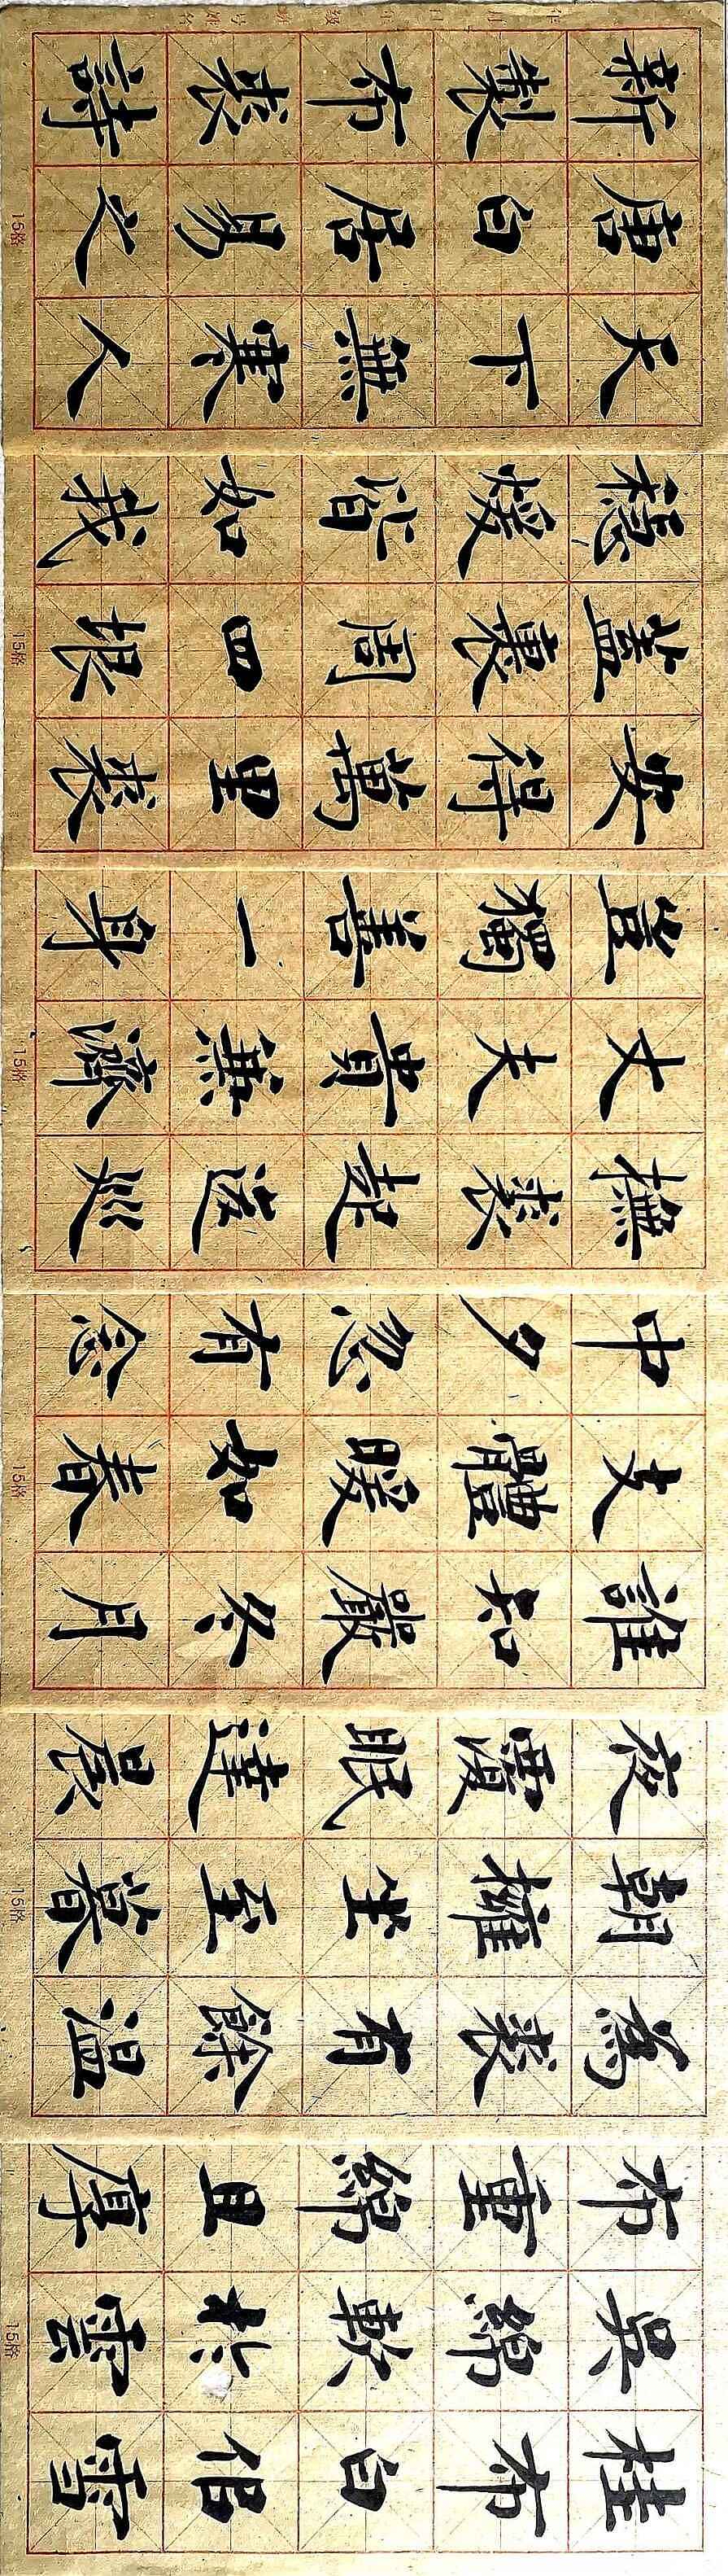 桂布白佀雪
吳綿軟於雲
布重綿且厚
為裘有餘温
朝擁坐至暮
夜覆眠達晨
誰知嚴冬月
支體暖如春
中夕忽有念
撫裘起逡巡
丈夫貴兼濟
豈獨善一身
安得萬里裘
蓋裹周四垠
穩煖皆如我
天下無寒人
唐白居易之
新製布裘詩
15格
15格
15格
15格
15格
15格